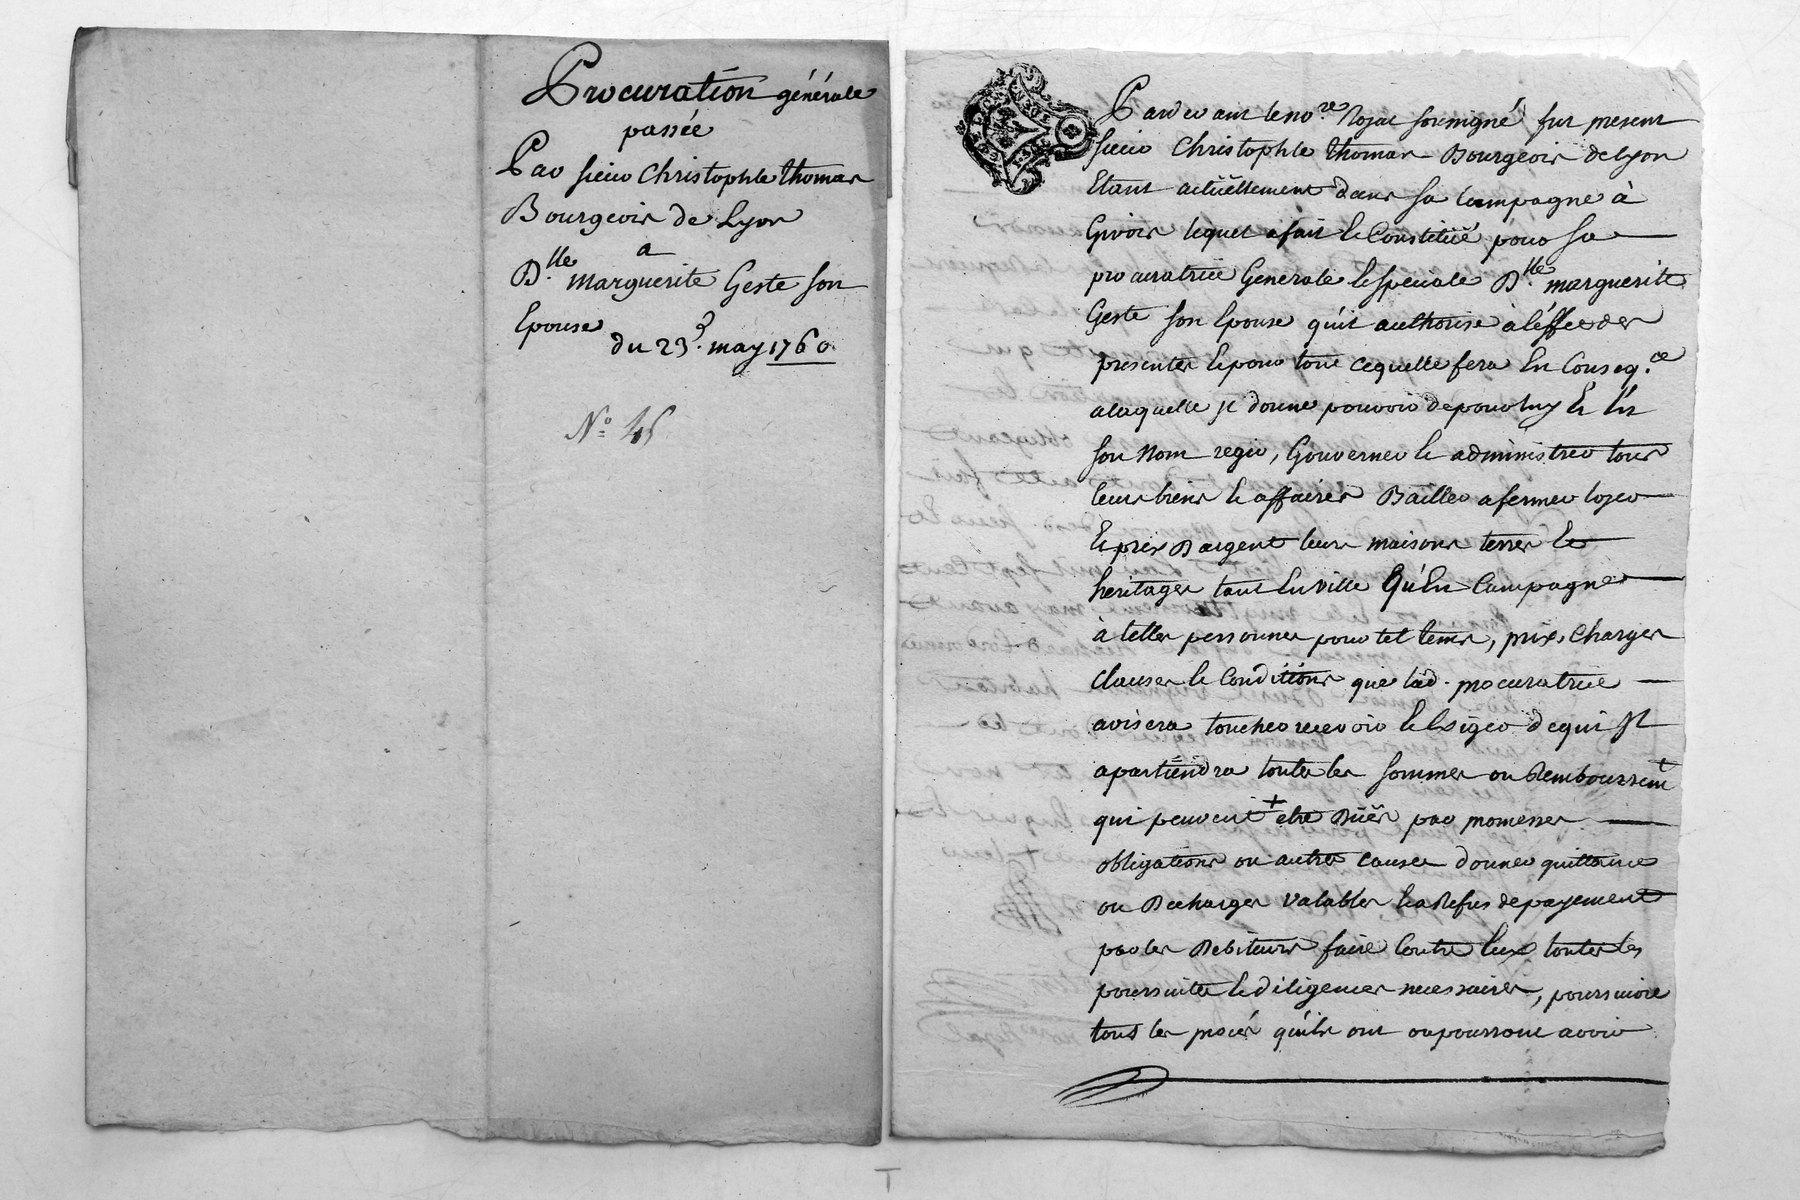 Procuration générale
passée
Par sieur Christophle thomas
Bourgeois de Lyon
a
D.lle marguerite Geste son
Epouse
du 23e. may 1760.
N.o 45
Pardevant le no.re Royal soussigné fut present
sieur Christophle thomas Bourgeois de Lyon
Etant actüellement dans sa Campagne à
Givors lequel a fait et Constitüé pour sa
procuratrice Generale et speciale D.lle marguerite
Geste son Epouse qu'il authorise à l'éffet des
presentes et pour tout ce quelle fera En Conseq.ce
a laquelle il donne pouvoir de pour luy Et En
son Nom regir, Gouverner et administrer tous
leurs biens et affaires Bailler a fermer loyer
Et prix D'argent leurs maisons terres Et
heritages tant En ville Qu'En Campagne
à telles personnes pour tel tems, prix, Charges
Clauses et Conditions que lad. procuratrice
avisera toucher recevoir et Exiger de qui Il
apartiendra toutes les sommes ou Remboursemt
qui peuvent + etre Düës par promesses
obligations ou autres causes donner quittance
ou Decharges valables Et a Refus de payement
par les Debiteurs faire Contre Eux toutes les
poursuites et diligences necessaires, poursuivre
tous les procés qu'ils ont ou pourront avoir